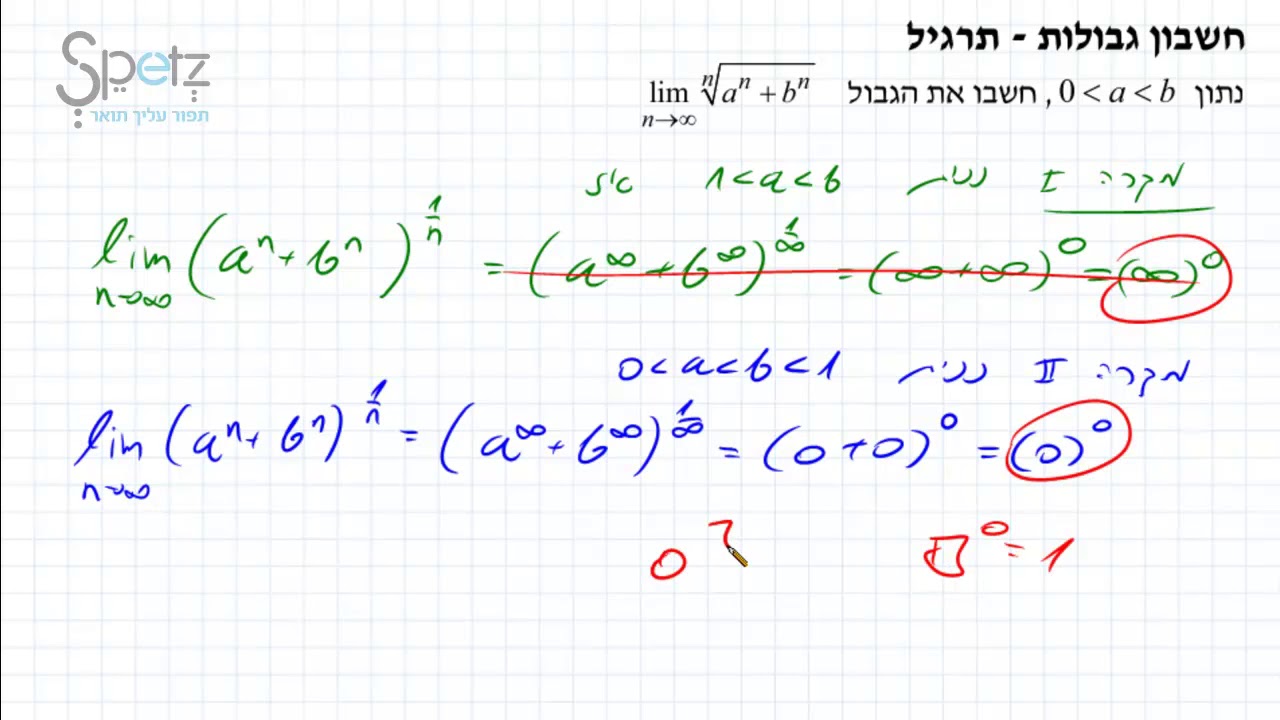 Spetz
תפור עליך תואר
חשבון גבולות - תרגיל
נתון 0 < a < b , חשבו את הגבול lim n→∞ ⁿ√(aⁿ + bⁿ)
מקרה I נניח 1 < a < b אז
lim n→∞ (aⁿ + bⁿ)^(1/n) = (a^∞ + b^∞)^(1/∞) = (∞+∞)^0 = (∞)^0
מקרה II נניח 0 < a < b < 1
lim n→∞ (aⁿ + bⁿ)^(1/n) = (a^∞ + b^∞)^(1/∞) = (0+0)^0 = (0)^0
□^0 = 1
0